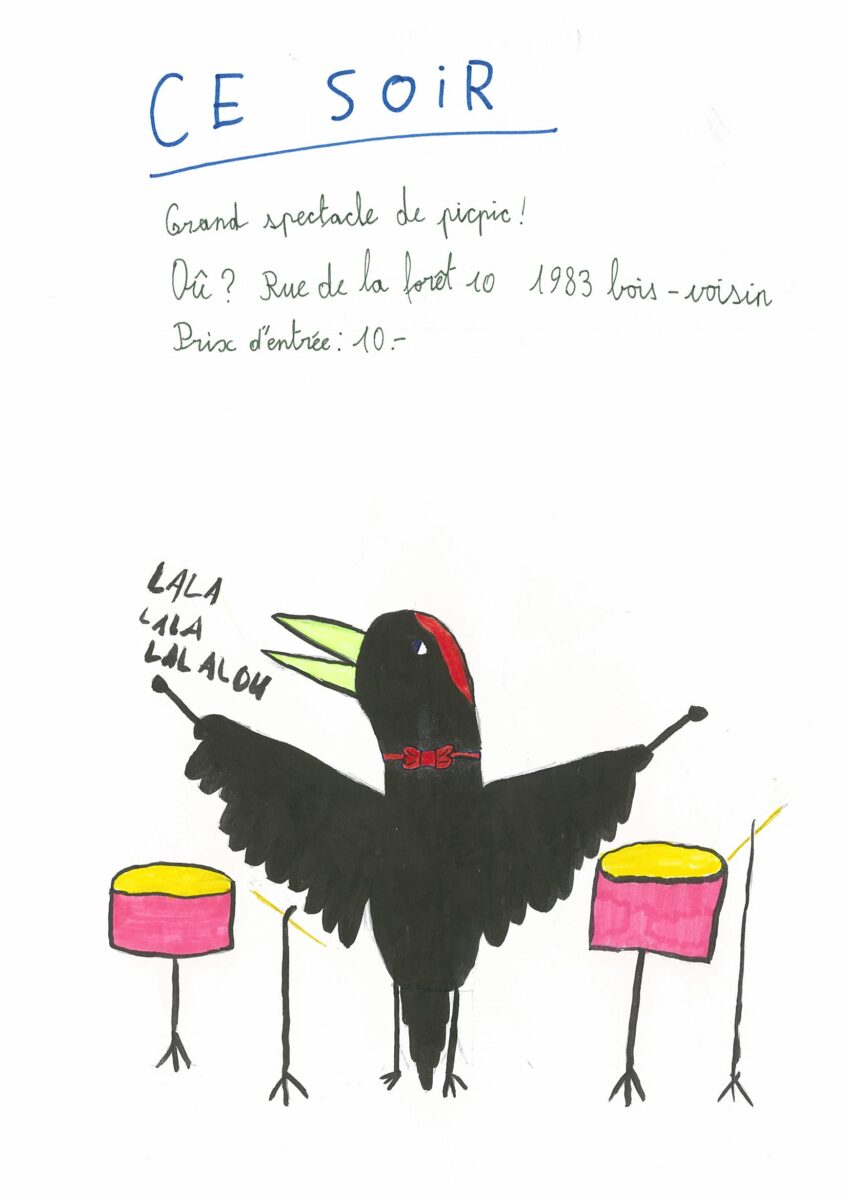 CE SOiR
Grand spectacle de picpic!
Où? Rue de la forêt 10 1983 bois-voisin
Prix d'entrée: 10.-
LALA
LALA
LALALOU